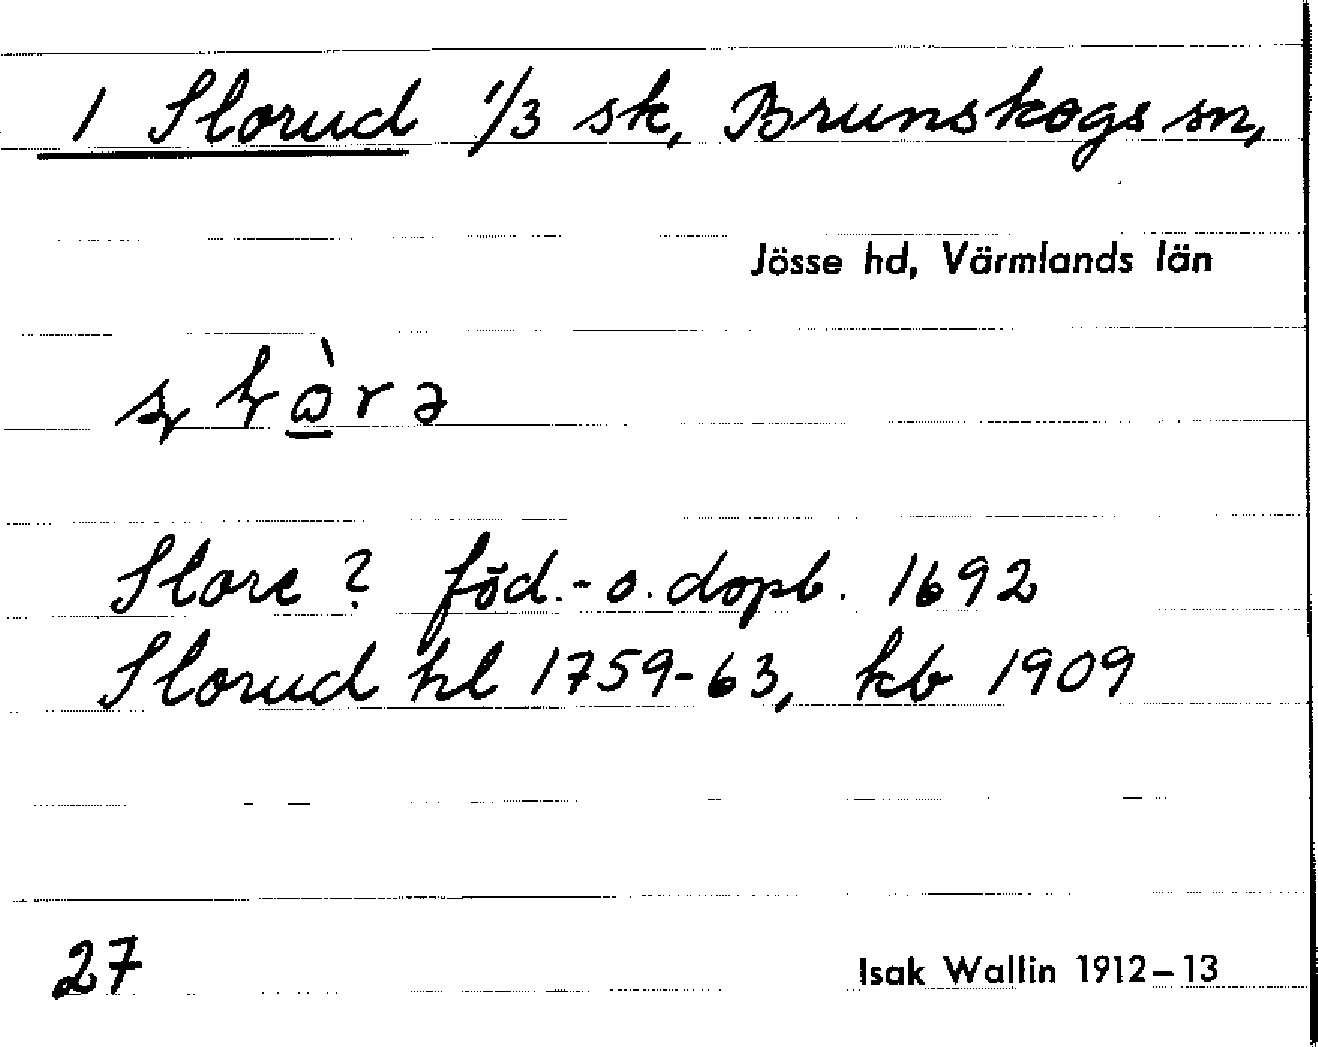 1 Slorud 1/3 sk, Brunskogs sn,
Jösse hd, Värmlands län
Slore? föd.- o. dopb. 1692
Slorud hl 1759-63, kb 1909
27
Isak Wallin 1912–13